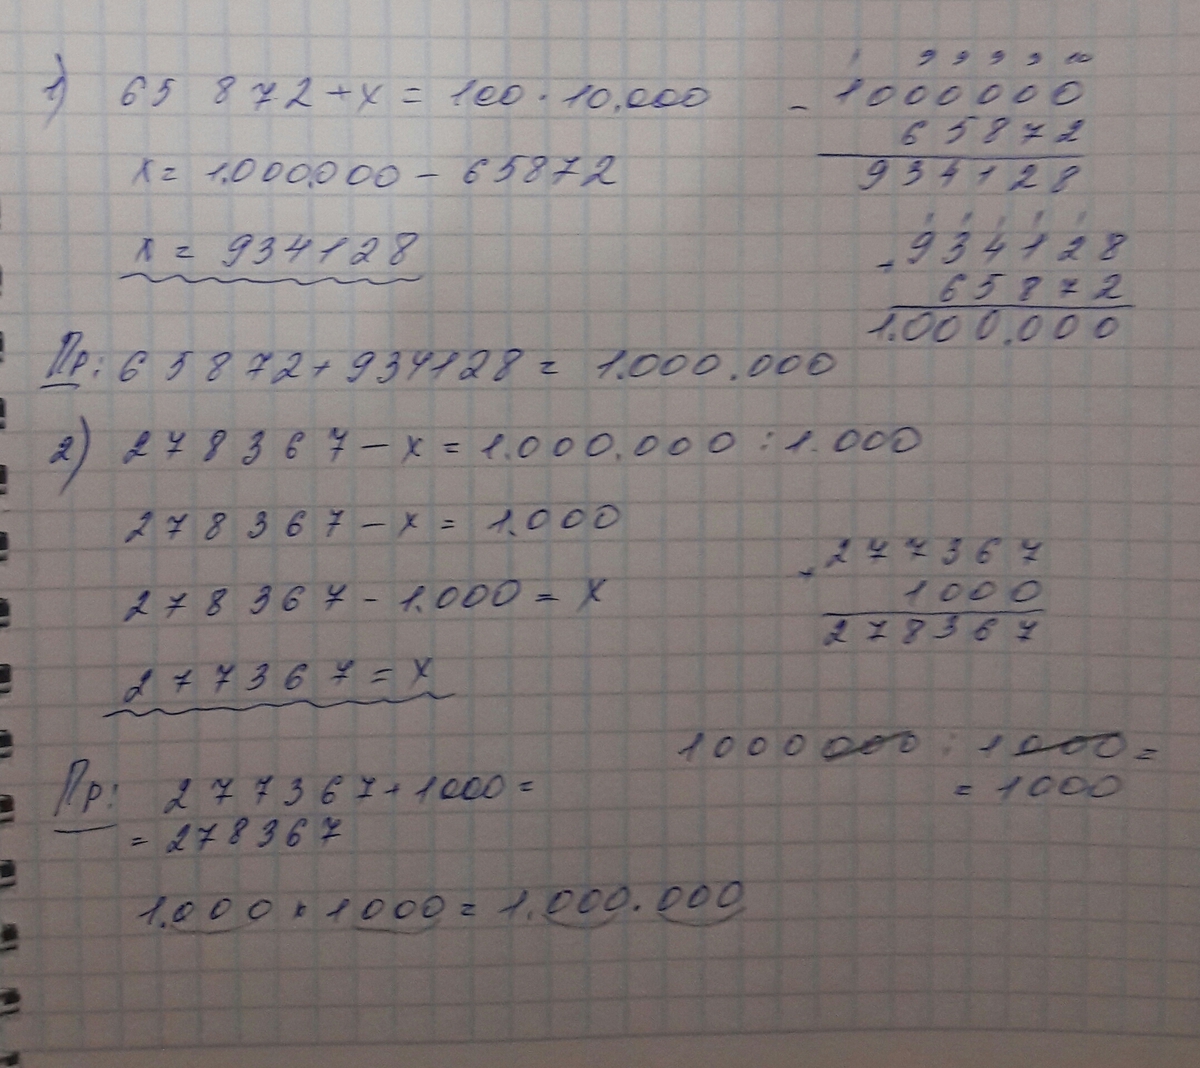 1) 65 872 + x = 100 · 10.000
x = 1.000.000 - 65872
x = 934128
Пр: 65872 + 934128 = 1.000.000
1 9 9 9 9 10
- 1000000
65872
934128
1 1 1 1 1
+ 934128
65872
1.000.000
2) 278367 - x = 1.000.000 : 1.000
278367 - x = 1.000
278367 - 1.000 = x
277367 = x
+ 277367
1000
278367
Пр: 277367 + 1000 =
= 278367
1.000 × 1000 = 1.000.000
1000000 : 1000 =
= 1000